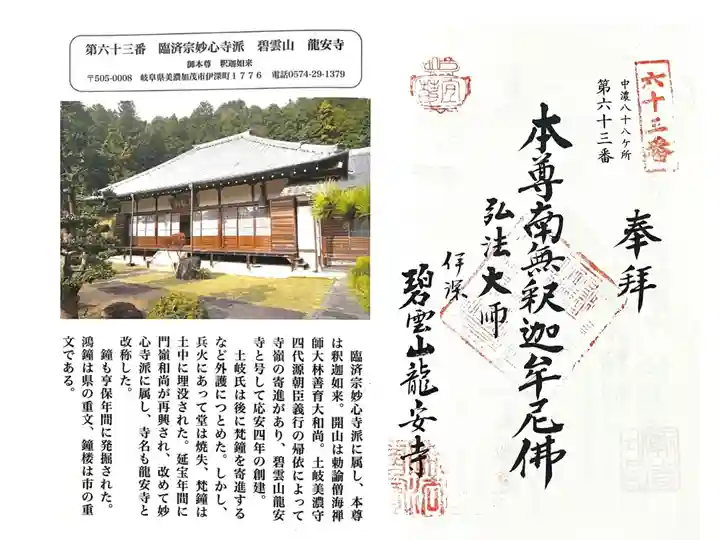 第六十三番　臨済宗妙心寺派　碧雲山　龍安寺
御本尊　釈迦如来
〒505-0008　岐阜県美濃加茂市伊深町１７７６　電話0574-29-1379
臨済宗妙心寺派に属し、本尊
は釈迦如来。開山は勅諭僧海禅
師大林善育大和尚。土岐美濃守
四代源朝臣義行の帰依によって
寺嶺の寄進があり、碧雲山龍安
寺と号して応安四年の創建。
土岐氏は後に梵鐘を寄進する
など外護につとめた。しかし、
兵火にあって堂は焼失、梵鐘は
土中に埋没された。延宝年間に
門嶺和尚が再興され、改めて妙
心寺派に属し、寺名も龍安寺と
改称した。
鐘も享保年間に発掘された。
鴻鐘は県の重文、鐘楼は市の重
文である。
六十三番
中濃八十八ケ所
第六十三番
奉拝
本尊南無釈迦牟尼佛
弘法大师
伊深
碧雲山龍安寺